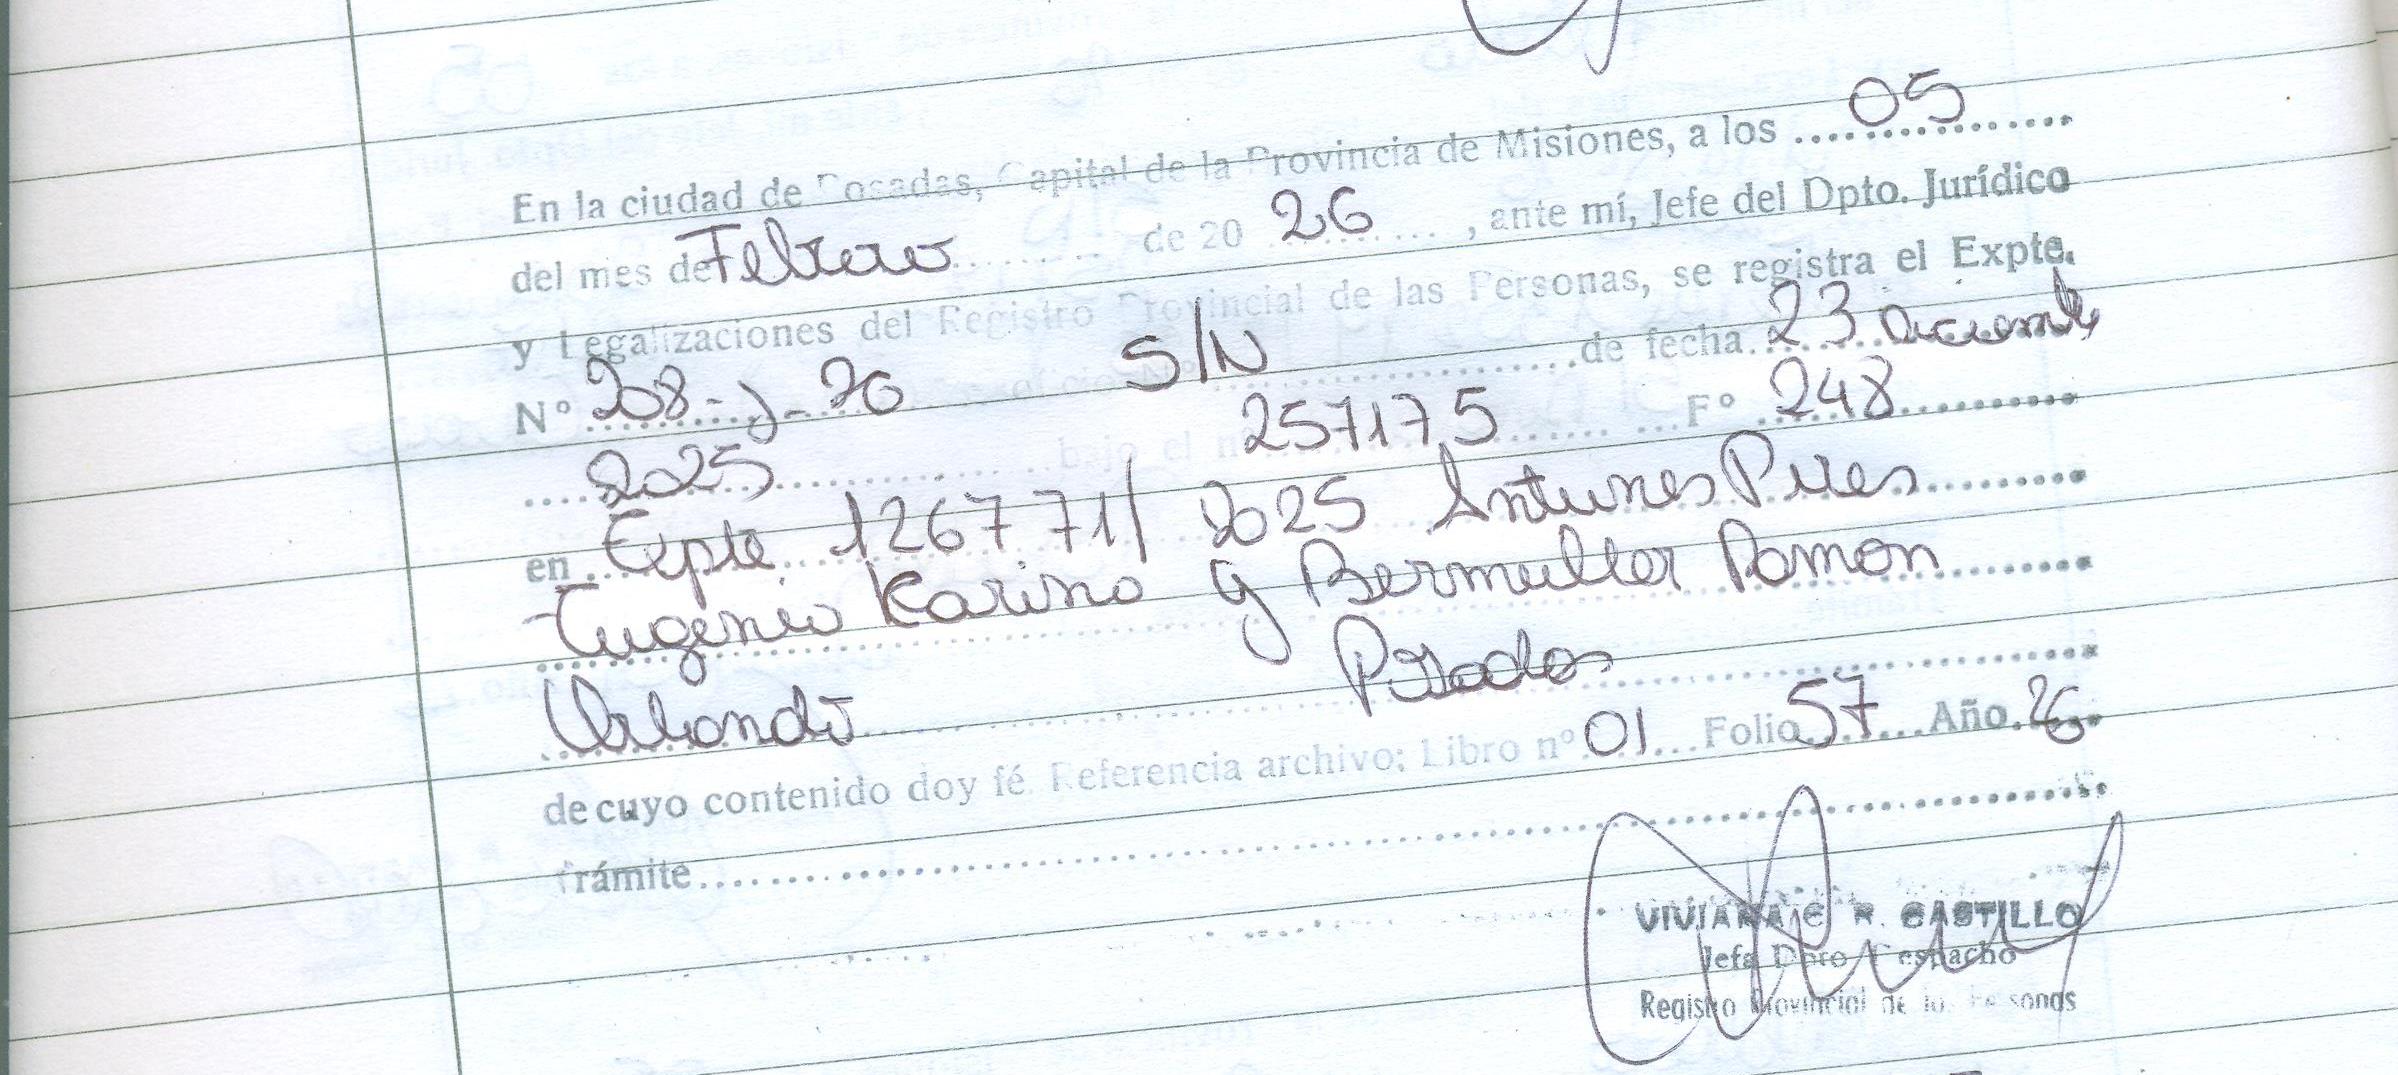 En la ciudad de Posadas, Capital de la Provincia de Misiones, a los 05
del mes de Febrero de 20 26, ante mí, Jefe del Dpto. Jurídico
y Legalizaciones del Registro Provincial de las Personas, se registra el Expte.
N° 208-J-26 S/N de fecha 23 Diciembre
2025 bajo el n 257175 F° 248
en Expte 126771/2025 Antunes Pires
Eugenia Karina y Bermuller Ramon
Orlando Posadas
de cuyo contenido doy fé. Referencia archivo: Libro n° 01 Folio 57 Año 26
trámite
VIVIANA C. R. CASTILLO
Jefa Dpto Despacho
Registro Provincial de las Personas